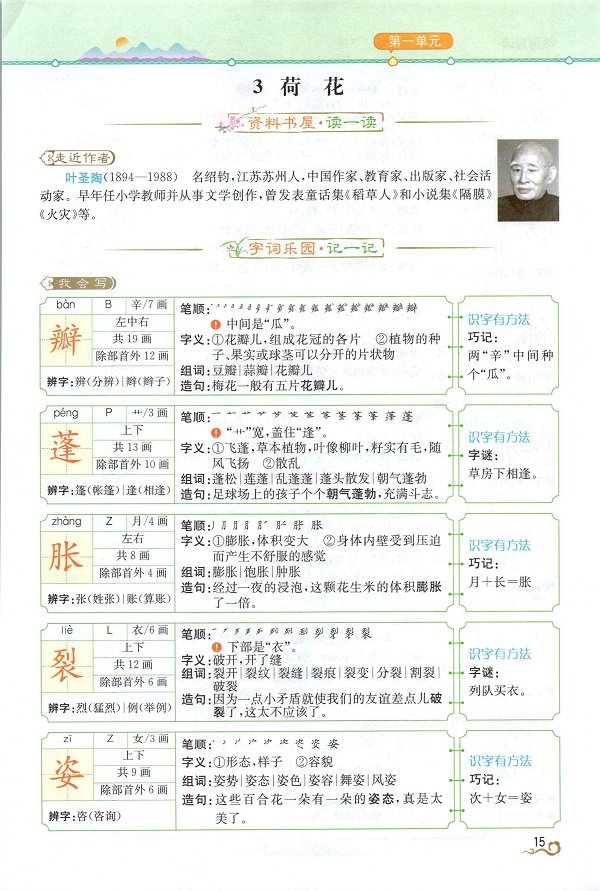 第一单元
3 荷 花
资料书屋·读一读
走近作者
叶圣陶(1894—1988) 名绍钧,江苏苏州人,中国作家、教育家、出版家、社会活
动家。早年任小学教师并从事文学创作,曾发表童话集《稻草人》和小说集《隔膜》
《火灾》等。
字词乐园·记一记
我会写
bàn B 辛/7画
瓣
左中右
共19画
除部首外12画
辨字:辨(分辨)|辫(辫子)
笔顺:
中间是“瓜”。
字义:①花瓣儿,组成花冠的各片 ②植物的种
子、果实或球茎可以分开的片状物
组词:豆瓣|蒜瓣|花瓣儿
造句:梅花一般有五片花瓣儿。
识字有方法
巧记:
两“辛”中间种
个“瓜”。
péng P 艹/3画
蓬
上下
共13画
除部首外10画
辨字:篷(帐篷)|逢(相逢)
笔顺:
“艹”宽,盖住“逢”。
字义:①飞蓬,草本植物,叶像柳叶,籽实有毛,随
风飞扬 ②散乱
组词:蓬松|莲蓬|乱蓬蓬|蓬头散发|朝气蓬勃
造句:足球场上的孩子个个朝气蓬勃,充满斗志。
识字有方法
字谜:
草房下相逢。
zhàng Z 月/4画
胀
左右
共8画
除部首外4画
辨字:张(姓张)|账(算账)
笔顺:
字义:①膨胀,体积变大 ②身体内壁受到压迫
而产生不舒服的感觉
组词:膨胀|饱胀|肿胀
造句:经过一夜的浸泡,这颗花生米的体积膨胀
了一倍。
识字有方法
巧记:
月+长=胀
liè L 衣/6画
裂
上下
共12画
除部首外6画
辨字:烈(猛烈)|例(举例)
笔顺:
下部是“衣”。
字义:破开,开了缝
组词:裂开|裂纹|裂缝|裂痕|裂变|分裂|割裂|
破裂
造句:因为一点小矛盾就使我们的友谊差点儿破
裂了,这太不应该了。
识字有方法
字谜:
列队买衣。
zī Z 女/3画
姿
上下
共9画
除部首外6画
辨字:咨(咨询)
笔顺:
字义:①形态,样子 ②容貌
组词:姿势|姿态|姿色|姿容|舞姿|风姿
造句:这些百合花一朵有一朵的姿态,真是太
美了。
识字有方法
巧记:
次+女=姿
15